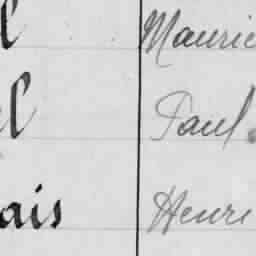 l Mauric
l Paul
ais Henri